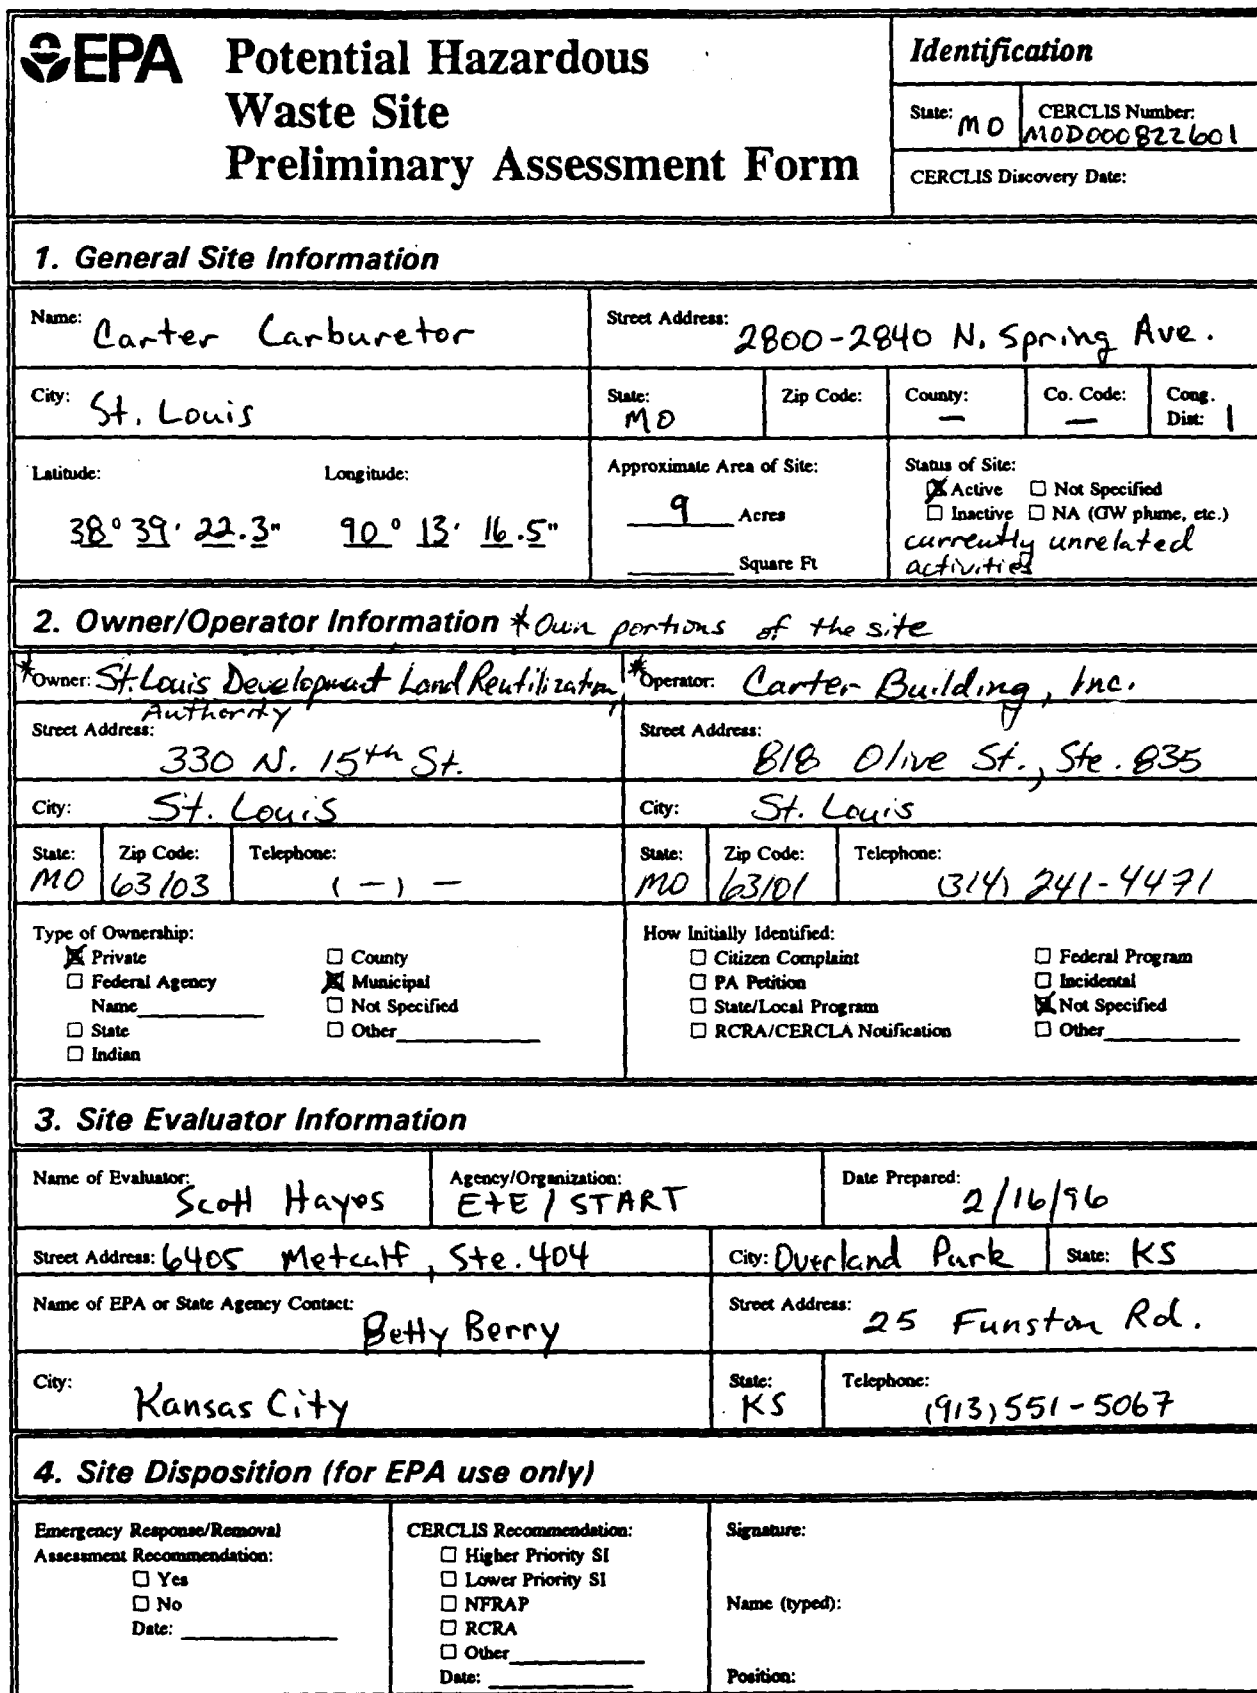 EPA Potential Hazardous
Waste Site
Preliminary Assessment Form
Identification
State: MO
CERCLIS Number:
MOD000822601
CERCLIS Discovery Date:
1. General Site Information
Name: Carter Carburetor
Street Address: 2800-2840 N. Spring Ave.
City: St. Louis
State: MO
Zip Code:
County: —
Co. Code: —
Cong. Dist: 1
Latitude: Longitude:
38° 39' 22.3" 90° 13' 16.5"
Approximate Area of Site:
9 Acres
Square Ft
Status of Site:
☒ Active ☐ Not Specified
☐ Inactive ☐ NA (GW plume, etc.)
currently unrelated
activities
2. Owner/Operator Information *Own portions of the site
*Owner: St. Louis Development Land Reutilization,
Authority
Street Address:
330 N. 15th St.
City: St. Louis
State: MO
Zip Code: 63103
Telephone: (—) —
*Operator: Carter Building, Inc.
Street Address:
818 Olive St., Ste. 835
City: St. Louis
State: MO
Zip Code: 63101
Telephone: (314) 241-4471
Type of Ownership:
☒ Private ☐ County
☐ Federal Agency ☒ Municipal
Name ☐ Not Specified
☐ State ☐ Other
☐ Indian
How Initially Identified:
☐ Citizen Complaint ☐ Federal Program
☐ PA Petition ☐ Incidental
☐ State/Local Program ☒ Not Specified
☐ RCRA/CERCLA Notification ☐ Other
3. Site Evaluator Information
Name of Evaluator: Scott Hayes
Agency/Organization: E+E / START
Date Prepared: 2/16/96
Street Address: 6405 Metcalf, Ste. 404
City: Overland Park
State: KS
Name of EPA or State Agency Contact:
Betty Berry
Street Address: 25 Funston Rd.
City: Kansas City
State: KS
Telephone: (913) 551-5067
4. Site Disposition (for EPA use only)
Emergency Response/Removal
Assessment Recommendation:
☐ Yes
☐ No
Date:
CERCLIS Recommendation:
☐ Higher Priority SI
☐ Lower Priority SI
☐ NFRAP
☐ RCRA
☐ Other
Date:
Signature:
Name (typed):
Position: